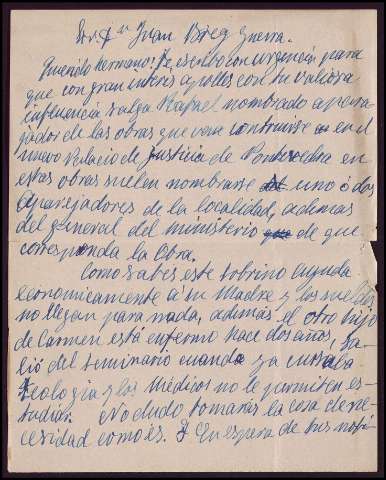 Sr. Dn Juan Breg Guerra.
Querido hermano: Te escribo con urgencia para
que con gran interés apolles con tu valiosa
influencia salga Rafael nombrado apare
jador de las obras que van construirse en el
nuevo Palacio de Justicia de Pontevedra en
estas obras suelen nombrarse uno ó dos
Aparejadores de la localidad, ademas
del general del ministerio de que
corresponda la Obra.
Como sabes este sobrino ayuda
economicamente a su Madre y los
no llegan para nada, además el otro hijo
de Carmen está enfermo hace dos años, sa-
lió del seminario cuando ya cursaba
Teologia y los Médicos no le permiten es-
tudiar. No dudo tomarás la cosa de ne
cesidad como és. En espera de tus noti-